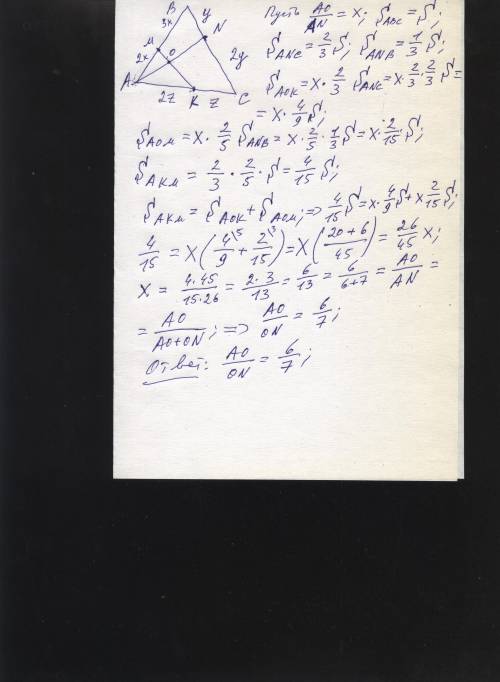 B
3x
y
N
M
2x
O
2y
A
2z
K
z
C
Пусть AO/AN = x; S_ABC = S;
S_ANC = 2/3 S; S_ANB = 1/3 S;
S_AOK = x · 2/3 S_ANC = x · 2/3 · 2/3 S =
= x · 4/9 S;
S_AOM = x · 2/5 S_ANB = x · 2/5 · 1/3 S = x · 2/15 S;
S_AKM = 2/3 · 2/5 · S = 4/15 S;
S_AKM = S_AOK + S_AOM; => 4/15 S = x · 4/9 S + x 2/15 S;
4/15 = x(4\5/9 + 2\3/15) = x(20+6/45) = 26/45 x;
x = 4·45/15·26 = 2·3/13 = 6/13 = 6/6+7 = AO/AN =
= AO/AO+ON; => AO/ON = 6/7;
Ответ: AO/ON = 6/7;